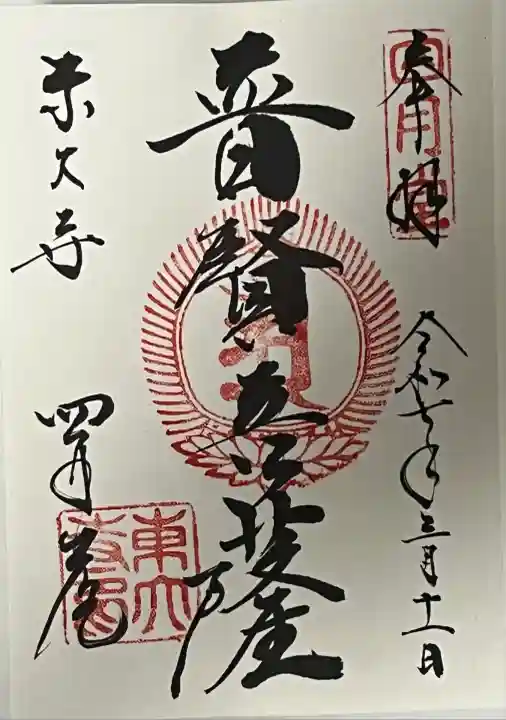 奉拝
令和七年三月十一日
普賢菩薩
東大寺 四月堂
四月堂